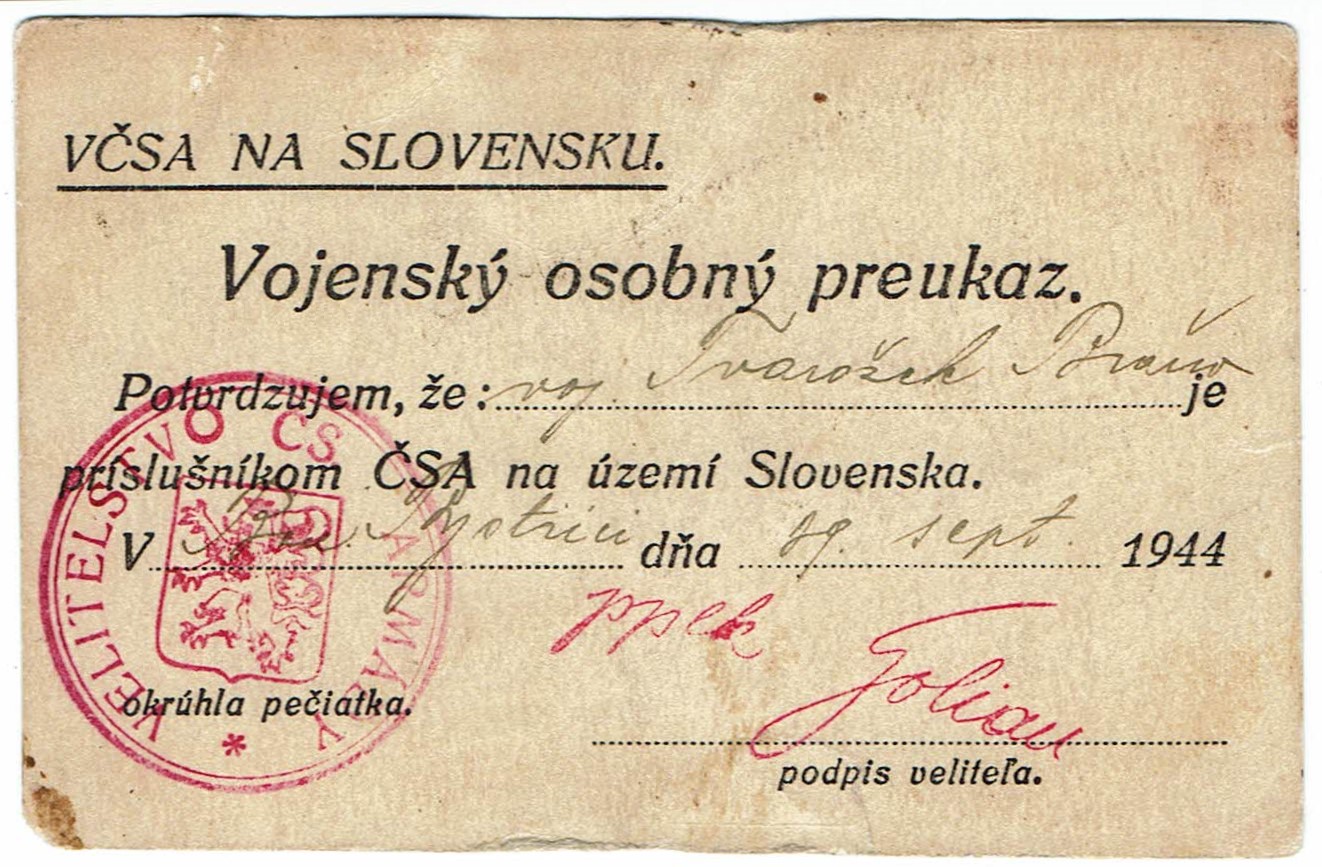 VČSA NA SLOVENSKU.
Vojenský osobný preukaz.
Potvrdzujem, že: voj. Tvarožek Braňo je
príslušníkom ČSA na území Slovenska.
V Ban. Bystrici dňa 19. sept. 1944
pplk Golian
okrúhla pečiatka.
podpis veliteľa.
VELITELSTVO ČS. ARMÁDY